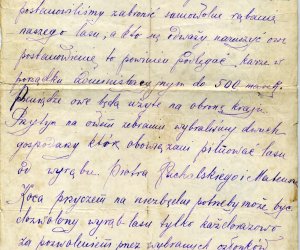 postanowiliśmy zabronić samowolne rąbanie
naszego lasu, a kto się odważy naruszyć owe
postanowienie to powinien podlegać karze w
porządku administracyjnym do 500 marek.
Pieniądze owe będą użyte na obronę kraju.
na owem zebraniu wybraliśmy dwóch
gospodarzy którzy obowiązani pilnować lasu
do wyrębu. Piotra Kuchalskiego i Mateusza
Koca przyczem na niezbędne potrzeby może być
dozwolony wyrąb lasu tylko każdorazowo
za pozwoleniem przez wybranych członków